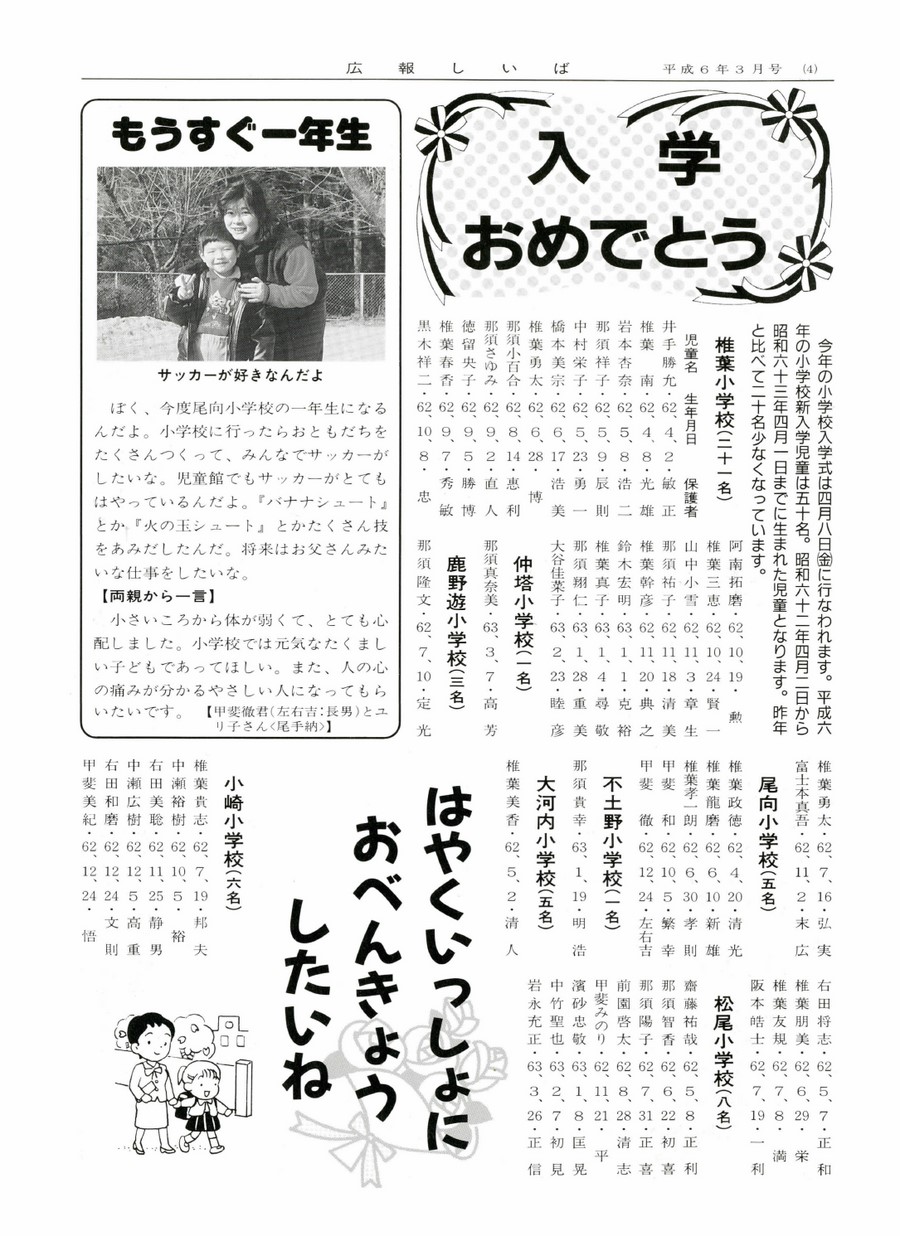 広報しいば
平成6年3月号 (4)
入学
おめでとう
今年の小学校入学式は四月八日㈮に行なわれます。平成六
年の小学校新入学児童は五十名。昭和六十二年四月二日から
昭和六十三年四月一日までに生まれた児童となります。昨年
と比べて二十名少なくなっています。
椎葉小学校(二十一名)
児童名 生年月日 保護者
井手勝允・62、4、2・敏正
椎葉 南・62、4、8・光雄
岩本杏奈・62、5、8・浩二
那須祥子・62、5、9・辰則
中村栄子・62、5、23・勇一
橋本美宗・62、6、17・浩美
椎葉勇太・62、6、28・博
那須小百合・62、8、14・恵利
那須さゆみ・62、9、2・直人
徳留央子・62、9、5・勝博
椎葉春香・62、9、7・秀敏
黒木祥二・62、10、8・忠
阿南拓磨・62、10、19・勲
椎葉三恵・62、10、24・賢一
山中小雪・62、11、3・章生
那須祐子・62、11、18・清美
椎葉幹彦・62、11、20・典之
鈴木宏明・63、1、1・克裕
椎葉真子・63、1、4・尋敬
那須翔仁・63、1、28・重美
大谷佳菜子・63、2、23・睦彦
仲塔小学校(一名)
那須真奈美・63、3、7・高芳
鹿野遊小学校(三名)
那須隆文・62、7、10・定光
椎葉勇太・62、7、16・弘実
富士本真吾・62、11、2・末広
尾向小学校(五名)
椎葉政徳・62、4、20・清光
椎葉龍磨・62、6、10・新雄
椎葉孝一朗・62、6、30・孝則
甲斐 和・62、10、5・繁幸
甲斐 徹・62、12、24・左右吉
不土野小学校(一名)
那須貴幸・63、1、19・明浩
大河内小学校(五名)
椎葉美香・62、5、2・清人
右田将志・62、5、7・正和
椎葉朋美・62、6、29・栄
椎葉友規・62、7、8・満
阪本皓士・62、7、19・一利
松尾小学校(八名)
齋藤祐哉・62、5、8・正利
那須智香・62、6、22・初喜
那須陽子・62、7、31・正喜
前園啓太・62、8、28・清志
甲斐みのり・62、11、21・平
濱砂忠敬・63、1、8・匡晃
中竹聖也・63、2、7・初見
岩永充正・63、3、26・正信
小崎小学校(六名)
椎葉貴志・62、7、19・邦夫
中瀬裕樹・62、10、5・裕
右田美聡・62、11、25・静男
中瀬広樹・62、12、5・高重
右田和磨・62、12、24・文則
甲斐美紀・62、12、24・悟
はやくいっしょに
おべんきょう
したいね
もうすぐ一年生
サッカーが好きなんだよ
ぼく、今度尾向小学校の一年生になる
んだよ。小学校に行ったらおともだちを
たくさんつくって、みんなでサッカーが
したいな。児童館でもサッカーがとても
はやっているんだよ。『バナナシュート』
とか『火の玉シュート』とかたくさん技
をあみだしたんだ。将来はお父さんみた
いな仕事をしたいな。
【両親から一言】
小さいころから体が弱くて、とても心
配しました。小学校では元気なたくまし
い子どもであってほしい。また、人の心
の痛みが分かるやさしい人になってもら
いたいです。【甲斐徹君(左右吉:長男)とユ
リ子さん〈尾手納〉】